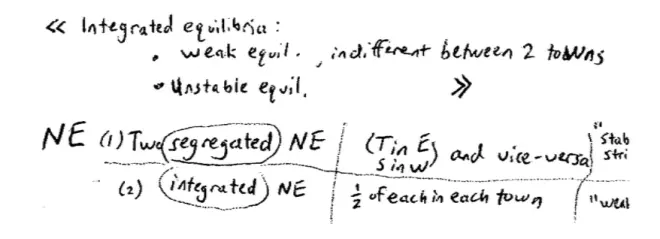 << Integrated equilibria :
• weak equil. , indifferent between 2 towns
• Unstable equil. >>
NE (1) Two segregated NE (T in E, S in W) and vice-versa "Stab stri
(2) integrated NE ½ of each in each town "weak